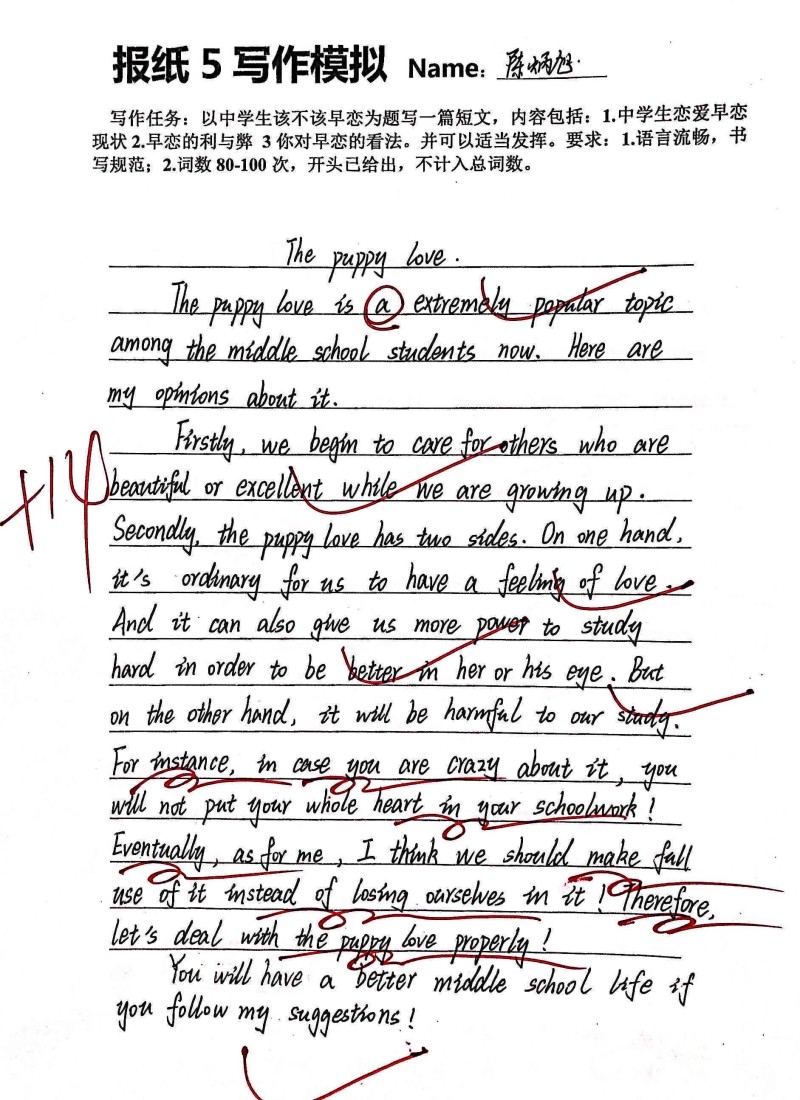 报纸 5 写作模拟 Name: 陈炳旭.
写作任务：以中学生该不该早恋为题写一篇短文，内容包括：1.中学生恋爱早恋
现状 2.早恋的利与弊 3 你对早恋的看法。并可以适当发挥。要求：1.语言流畅，书
写规范；2.词数 80-100 次，开头已给出，不计入总词数。
The puppy love.
The puppy love is a extremely popular topic
among the middle school students now. Here are
my opinions about it.
Firstly, we begin to care for others who are
beautiful or excellent while we are growing up.
Secondly, the puppy love has two sides. On one hand,
it's ordinary for us to have a feeling of love.
And it can also give us more power to study
hard in order to be better in her or his eye. But
on the other hand, it will be harmful to our study.
For instance, in case you are crazy about it, you
will not put your whole heart in your schoolwork!
Eventually, as for me, I think we should make full
use of it instead of losing ourselves in it! Therefore,
let's deal with the puppy love properly!
You will have a better middle school life if
you follow my suggestions!
+14